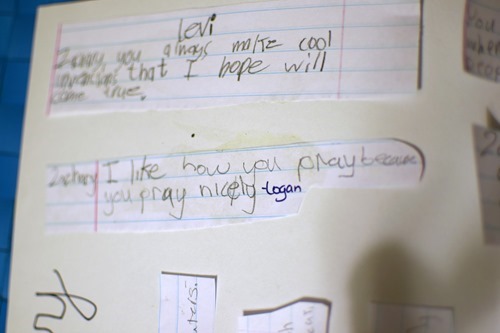 Levi
you always make cool
inventions that I hope will
come true.
Zachary I like how you pray because
you pray nicely -Logan